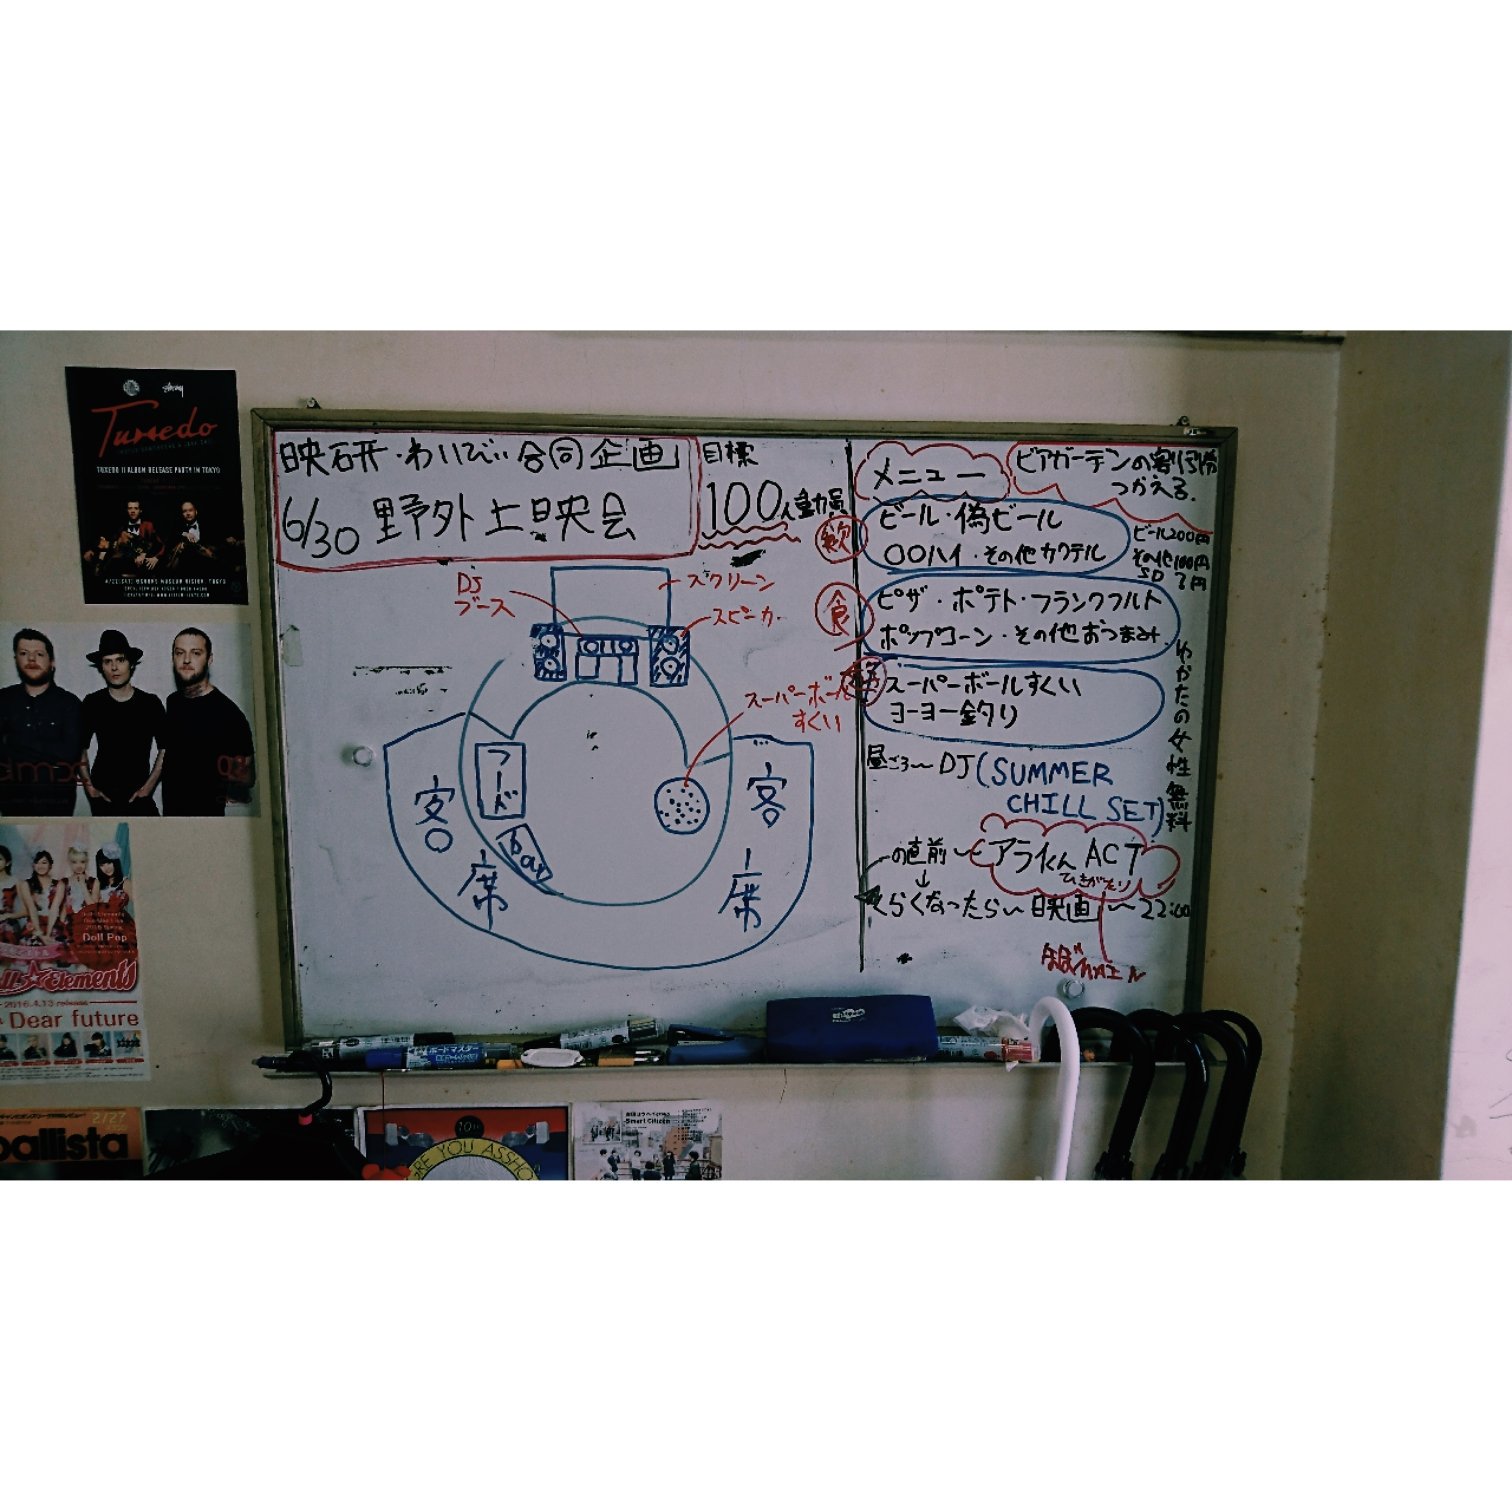 映研・わいびぃ合同企画
6/30 野外上映会
目標
100人動員
スクリーン
DJ
ブース
スピーカー
スーパーボール
すくい
フード
Bar
客
席
客
席
メニュー
ビアガーデンの
つかえる.
飲
ビール・偽ビール
〇〇ハイ・その他カクテル
ビール200円
その他100円
SD ?円
食
ピザ・ポテト・フランクフルト
ポップコーン・その他おつまみ
スーパーボールすくい
ヨーヨー釣り
ゆかたの女性無料
昼ごろ〜DJ(SUMMER
CHILL SET)
の直前〜アライくん ACT
ひきがたり
↓
くらくなったら〜映画〜22:00
Tuxedo
TUXEDO II ALBUM RELEASE PARTY IN TOKYO
Doll Pop
Doll☆Elements
2016.4.13 release
Dear future
ボードマスター
2/27
ballista
ARE YOU ASSHOL
Smart Citizen